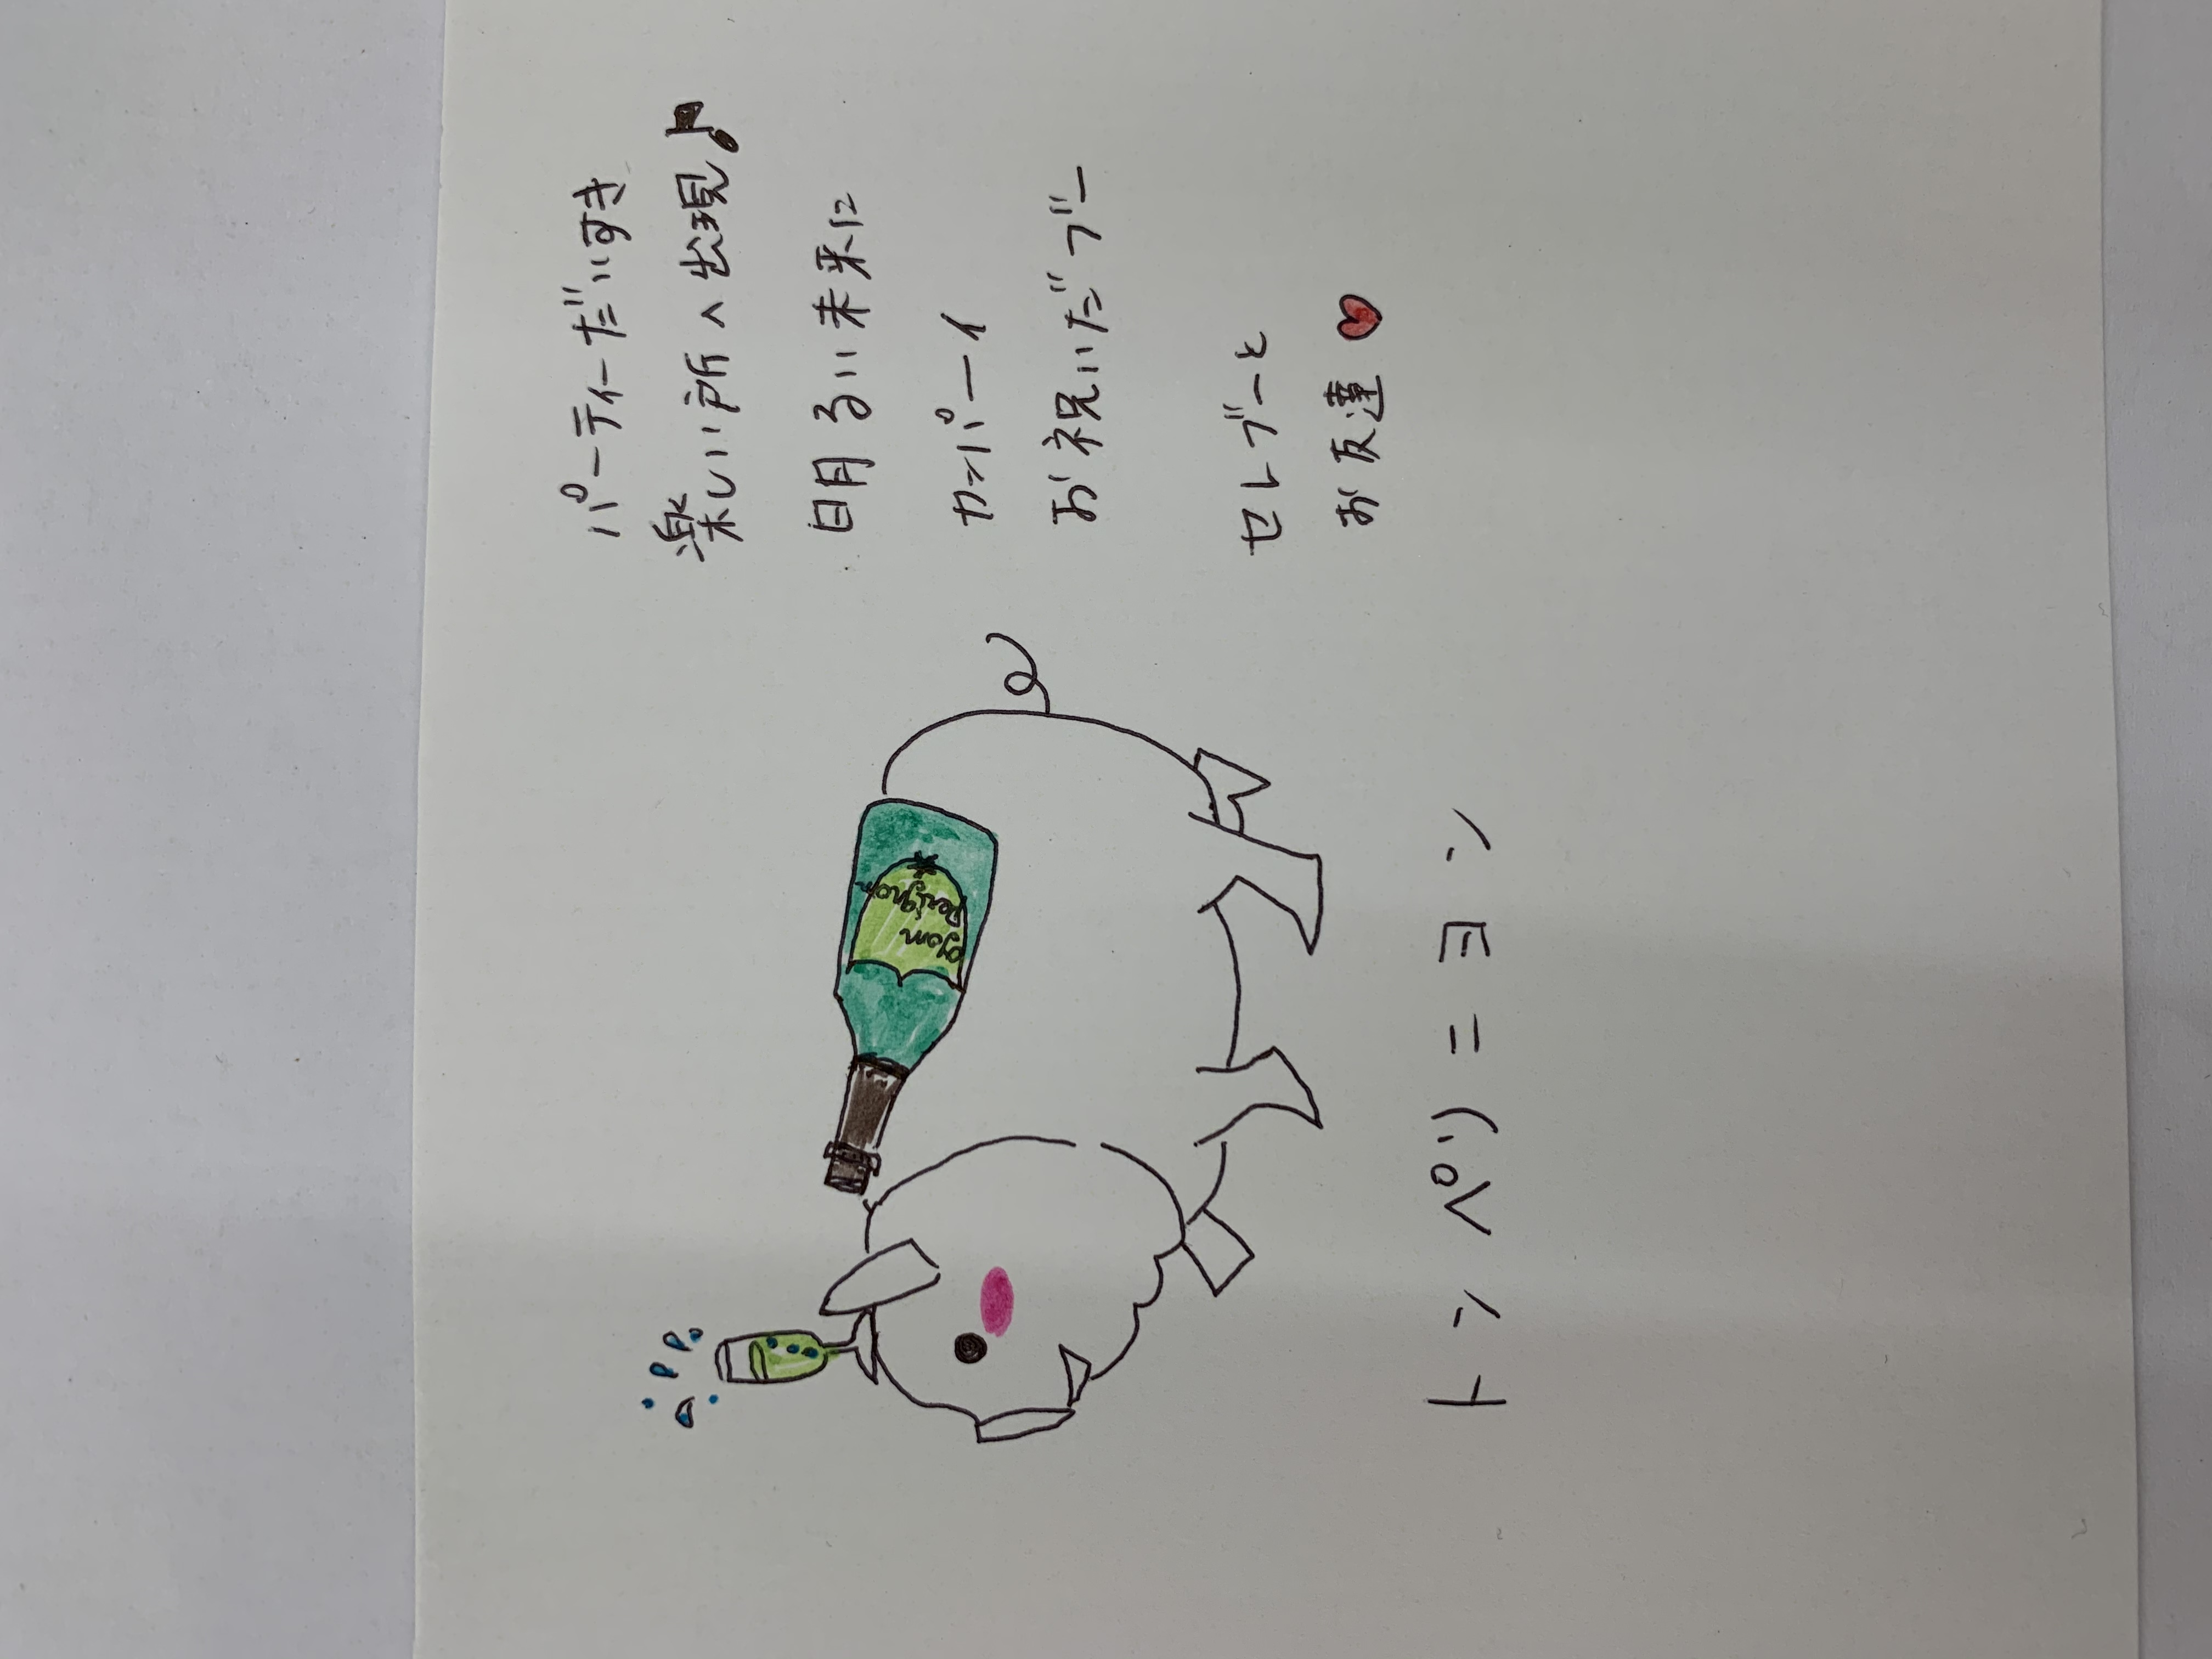 パーティーだいすき
楽しい所へ出現♪
明るい未来に
カンパーイ
お祝いだブー
セレブーと
お友達♥
Dom
Perignon
トンペリニヨン